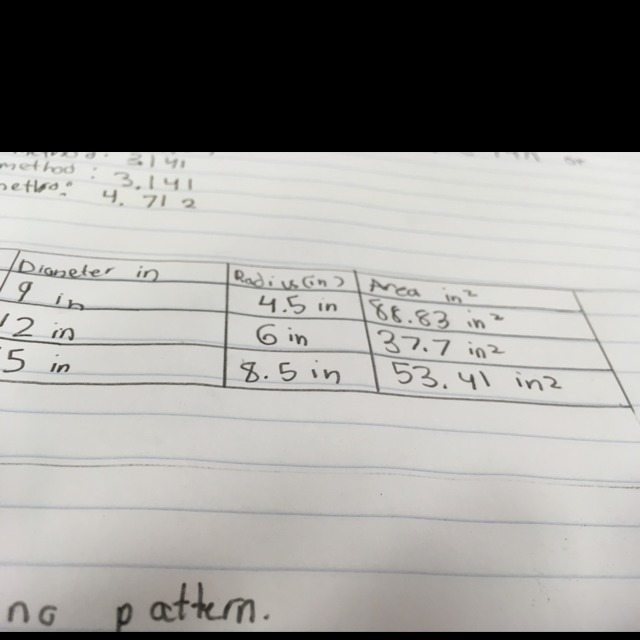 method: 3.141
4.712
Diameter in Radius(in) Area in²
9 in 4.5 in 88.83 in²
12 in 6 in 37.7 in²
5 in 8.5 in 53.41 in²
no pattern.